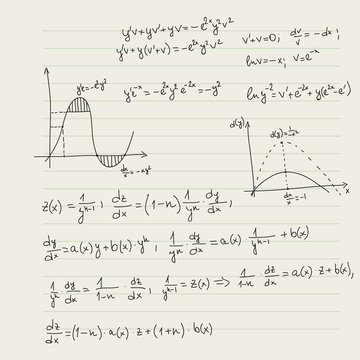 y'v+yv'+yv=-e²ˣy²v²
y'v+y(v'+v)=-e²ˣy²v²
v'+v=0; dv/v=-dx;
lnv=-x; v=e⁻ˣ
y'e⁻ˣ=-e²ˣy²e⁻²ˣ=-y²
d(y)=1/-x²
dx/dx=-1
x
z(x)=1/yⁿ⁻¹; dz/dx=(1-n)1/yⁿ·dy/dx;
dy/dx=a(x)y+b(x)·yⁿ; 1/yⁿ·dy/dx=a(x)·1/yⁿ⁻¹+b(x)
1/yⁿ·dy/dx=1/1-n·dz/dx; 1/yⁿ⁻¹=z(x)⇒1/1-n·dz/dx=a(x)·z+b(x),
dz/dx=(1-n)·a(x)·z+(1+n)·b(x)